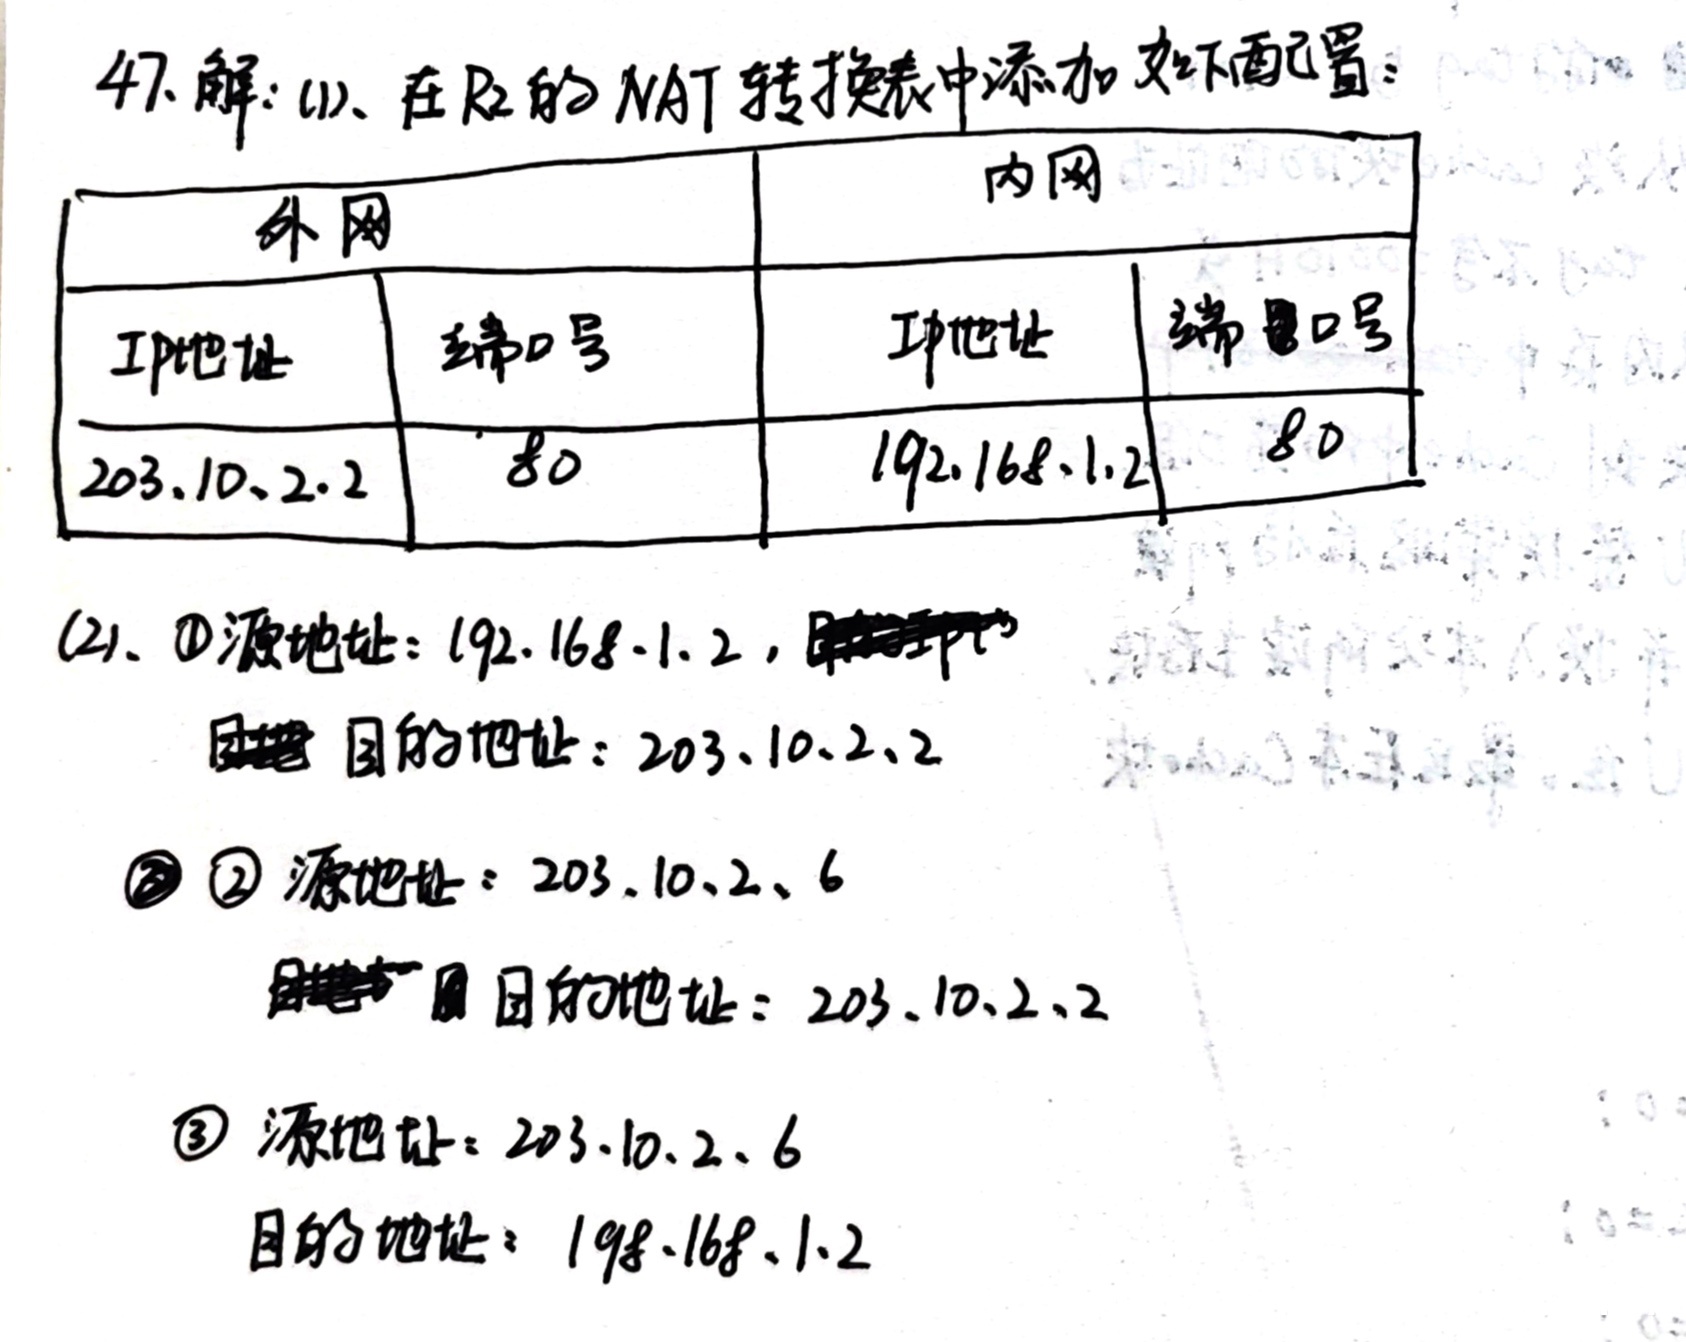 47、解：(1)、在R2的NAT转换表中添加如下配置：
外网 内网
IP地址 端口号 IP地址 端口号
203.10.2.2 80 192.168.1.2 80
(2)、①源地址：192.168.1.2，
目的地址：203.10.2.2
② 源地址：203.10.2.6
目的地址：203.10.2.2
③ 源地址：203.10.2.6
目的地址：198.168.1.2